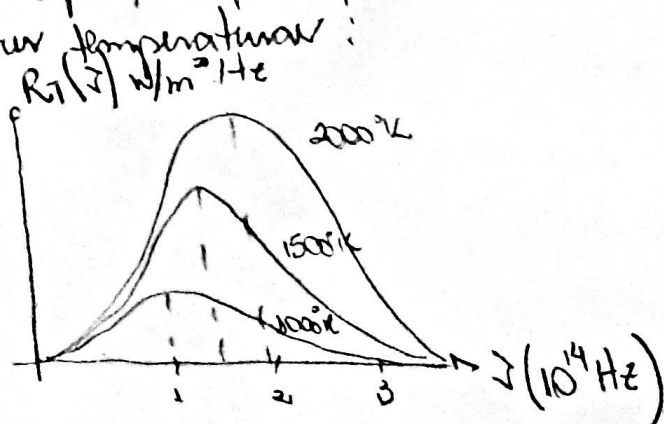 temperaturas:
R_T(ν) W/m² Hz
2000°K
1500°K
1000°K
1 2 3 ν (10¹⁴ Hz)